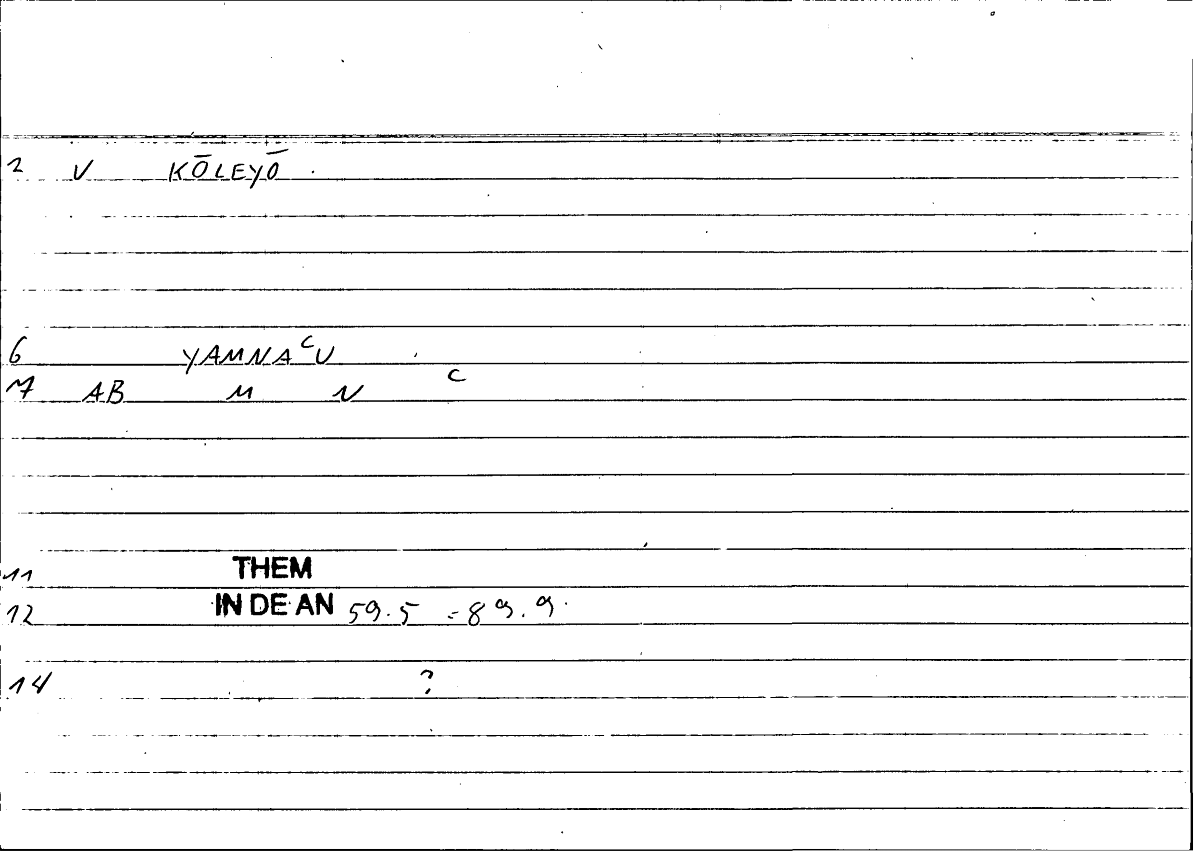 2 V KŌLEYŌ
6 YAMNAᶜU
7 AB M N C
11 THEM
12 IN DE AN 59.5 = 89.9.
14 ?